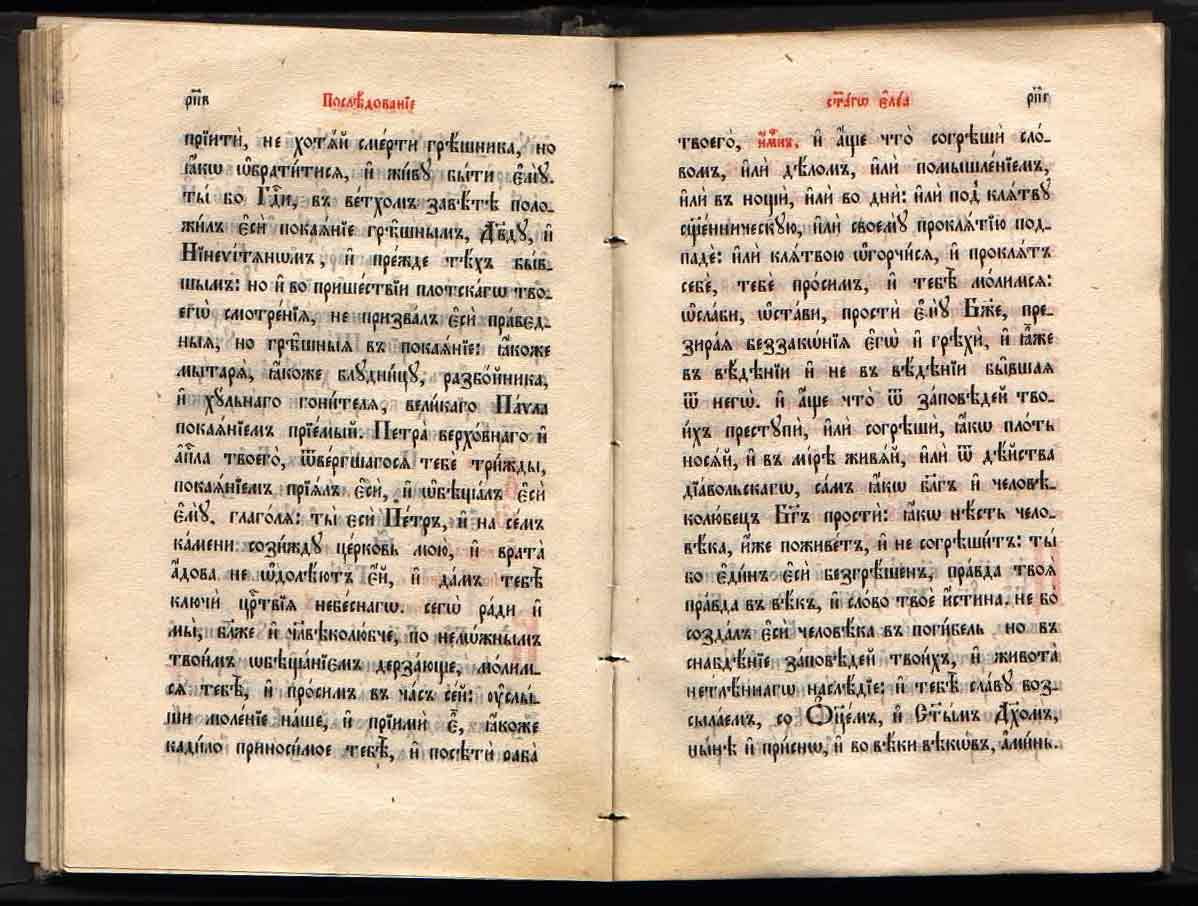 рп҃в
Послѣ́дованїе
прїитѝ, не хотѧ́й сме́рти грѣ́шника, но
ꙗ҆́кѡ ѡ҆брати́тисѧ, и҆ жи́ву бы́ти є҆мꙋ̀.
ты́ бо гдⷭ҇и, въ ве́тхомъ завѣ́тѣ поло-
жи́лъ є҆сѝ покаѧ́нїе грѣ́шнымъ, дв҃дꙋ, и҆
Нїнеѵі́тѧнѡмъ, и҆ пре́жде тѣ́хъ бы́в-
шымъ: но и҆ во прише́ствїи пло́тскагѡ тво-
егѡ̀ смотре́нїѧ, не призва́лъ є҆сѝ пра́вед-
ныѧ, но грѣ́шныѧ въ покаѧ́нїе: ꙗ҆́коже
мытарѧ̀, ꙗ҆́коже блꙋдни́цꙋ, разбо́йника,
и҆ хꙋ́льнаго гони́телѧ, вели́каго Па́ѵла
покаѧ́нїемъ прїе́мый. Петра̀ верхо́внаго и҆
а҆пⷭ҇ла твоего̀, ѿве́ргшагосѧ тебє̀ три́жды,
покаѧ́нїемъ прїѧ́лъ є҆сѝ, и҆ ѡ҆бѣща́лъ є҆сѝ
є҆мꙋ̀, глаго́лѧ: ты̀ є҆сѝ Пе́тръ, и҆ на се́мъ
ка́мени сози́ждꙋ це́рковь мою̀, и҆ врата̀
а҆́дова не ѡ҆долѣ́ютъ є҆́й, и҆ да́мъ тебѣ̀
ключѝ црⷭ҇твїѧ небе́снагѡ. сегѡ̀ ра́ди и҆
мы̀, бл҃же и҆ чл҃вѣколю́бче, по нело́жнымъ
твои́мъ ѡ҆бѣща́нїємъ дерза́юще, мо́лим-
сѧ тебѣ̀, и҆ про́симъ въ ча́съ се́й: ᲂу҆слы́-
ши моле́нїе на́ше, и҆ прїимѝ є҆̀, ꙗ҆́коже
кади́ло приноси́мое тебѣ̀, и҆ посѣтѝ раба̀
ст҃а́гѡ є҆ле́а
рп҃г
твоего̀, и҆́м̾къ, и҆ а҆́ще что̀ согрѣшѝ сло́-
вомъ, и҆лѝ дѣ́ломъ, и҆лѝ помышле́нїемъ,
и҆лѝ въ нощѝ, и҆лѝ во днѝ: и҆лѝ под̾ клѧ́твꙋ
сщ҃е́нническꙋю, и҆лѝ своемꙋ̀ проклѧ́тїю под-
падѐ: и҆лѝ клѧ́твою ѡ҆горчи́сѧ, и҆ проклѧ́тъ
себѐ, тебѐ про́симъ, и҆ тебѣ̀ мо́лимсѧ:
ѡ҆сла́би, ѡ҆ста́ви, простѝ є҆мꙋ̀ бж҃е, пре-
зира́ѧ беззакѡ́нїѧ є҆гѡ̀ и҆ грѣхѝ, и҆ ꙗ҆̀же
въ вѣ́дѣнїи и҆ не въ вѣ́дѣнїи бы́вшаѧ
ѿ негѡ̀. и҆ а҆́ще что̀ ѿ за́повѣдей тво-
и́хъ престꙋпѝ, и҆лѝ согрѣшѝ, ꙗ҆́кѡ пло́ть
носѧ́й, и҆ въ мі́рѣ живѧ́й, и҆лѝ ѿ дѣ́йства
дїа́вольскагѡ, са́мъ ꙗ҆́кѡ бл҃гъ и҆ человѣ-
колю́бецъ бг҃ъ простѝ: ꙗ҆́кѡ нѣ́сть чело-
вѣ́ка, и҆́же поживе́тъ, и҆ не согрѣши́тъ: ты́
бо є҆ди́нъ є҆сѝ безгрѣ́шенъ, пра́вда твоѧ̀
пра́вда въ вѣ́къ, и҆ сло́во твоѐ и҆́стина. не бо̀
созда́лъ є҆сѝ человѣ́ка въ поги́бель, но въ
снабдѣ́нїе за́повѣдей твои́хъ, и҆ живота̀
нетлѣ́ннагѡ наслѣ́дїе: и҆ тебѣ̀ сла́вꙋ воз-
сыла́емъ, со ѻ҆ц҃е́мъ, и҆ ст҃ы́мъ дх҃омъ,
ны́нѣ и҆ при́снѡ, и҆ во вѣ́ки вѣкѡ́въ, а҆ми́нь.